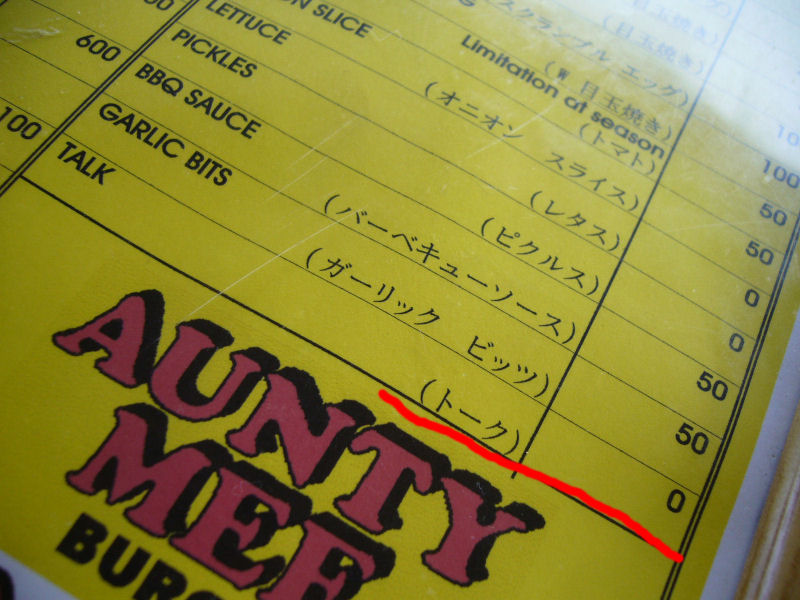 目玉焼き)
(目玉焼き)
スクランブル エッグ)
(W 目玉焼き) 100
Limitation at season (トマト) 50
SLICE (オニオン スライス) 50
LETTUCE (レタス) 0
PICKLES (ピクルス) 0
600 BBQ SAUCE (バーベキューソース) 50
GARLIC BITS (ガーリック ビッツ) 50
100 TALK (トーク) 0
AUNTY
MEE
BURG